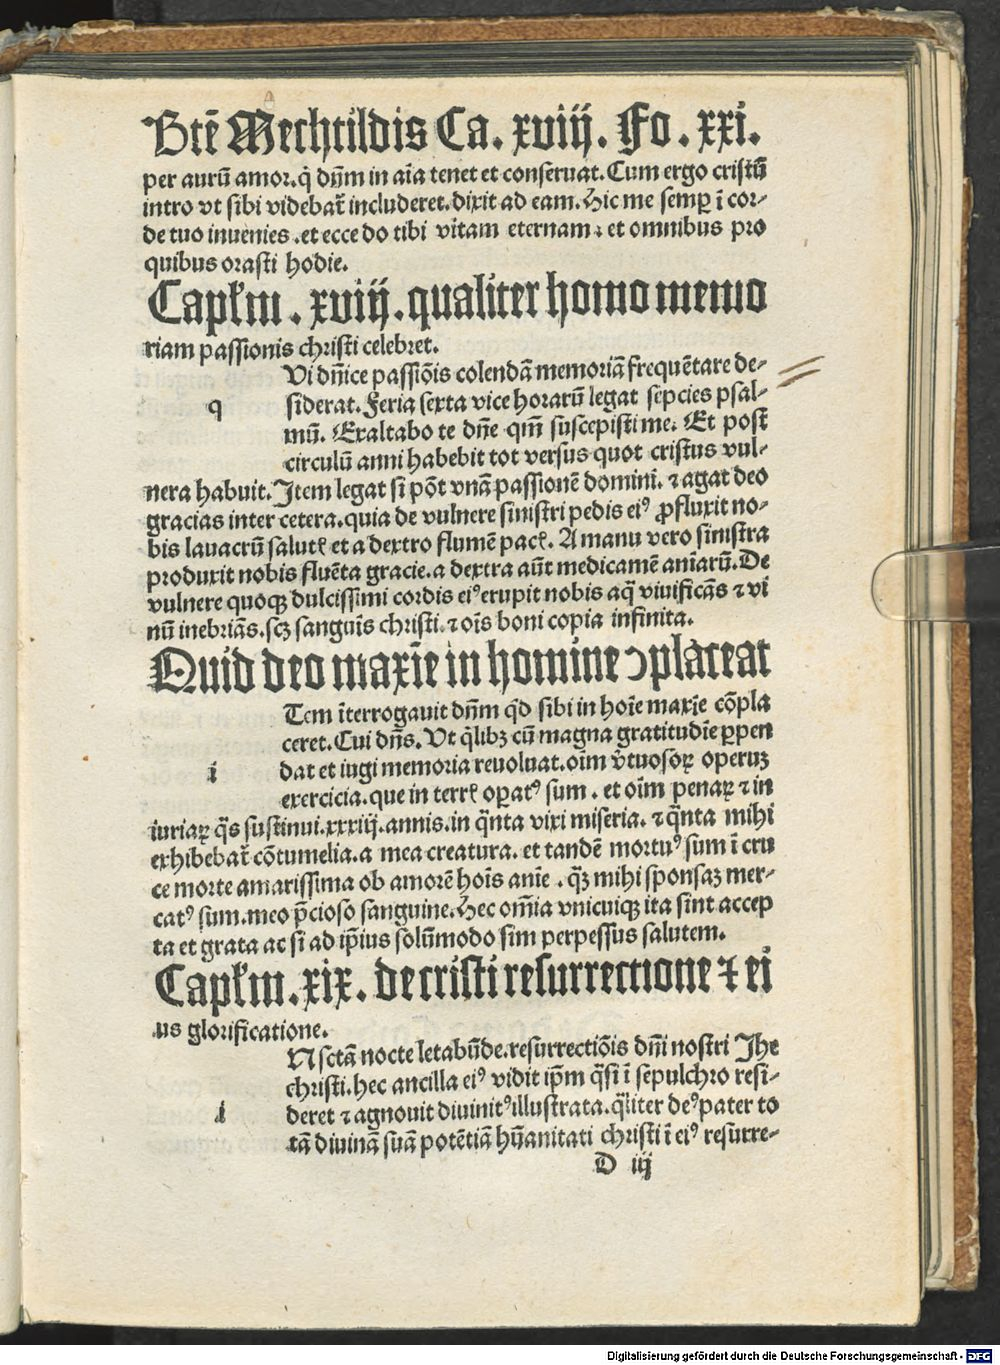 Btẽ Mechtildis Ca. xviij. Fo. xxi.
per aurũ amor. q̃ dñm in aĩa tenet et conseruat. Cum ergo cristũ
intro vt sibi videbat̃ includeret. dixit ad eam. Hic me semꝑ ĩ cor-
de tuo inuenies .et ecce do tibi vitam eternam: et omnibus pro
quibus orasti hodie.
Capľm . xviij . qualiter homo memo
riam passionis christi celebret.
Vi dñice passiõis colendã memoriã frequẽtare de-
q siderat. Feria sexta vice horarũ legat sepcies psal-
mũ. Exaltabo te dñe qm̃ suscepisti me. Et post
circulũ anni habebit tot versus quot cristus vul-
nera habuit. Item legat si põt vnã passionẽ domini. ⁊ agat deo
gracias inter cetera. quia de vulnere sinistri pedis eiꝰ ꝓfluxit no-
bis lauacrũ salutꝭ et a dextro flumẽ pacꝭ. A manu vero sinistra
produxit nobis fluẽta gracie. a dextra aũt medicamẽ aniarũ. De
vulnere quoqꝫ dulcissimi cordis eiꝰ erupit nobis aq̃ viuificãs ⁊ vi
nũ inebriãs. scꝫ sanguis christi. ⁊ oĩs boni copia infinita.
Quid deo maxĩe in homine ꝯplaceat
Tem ĩterrogauit dñm q̃d sibi in hoĩe maxĩe cõpla
ceret. Cui dñs. Vt q̃libꝫ cũ magna gratitudĩe ꝑpen
i dat et iugi memoria reuoluat. oĩm v̾tuosoꝝ operuꝫ
exercicia. que in terrꝭ oꝑatꝰ sum . et oĩm penaꝝ ⁊ in
iuriaꝝ q̃s sustinui. xxxiij. annis. in q̃nta vixi miseria. ⁊ q̃nta mihi
exhibebat̃ cõtumelia. a mea creatura. et tandẽ mortuꝰ sum ĩ cru
ce morte amarissima ob amorẽ hoĩs anĩe . q̃ꝫ mihi sponsaꝫ mer-
catꝰ sum. meo p̃cioso sanguine. Hec om̃ia vnicuiqꝫ ita sint accep
ta et grata ac si ad ip̃ius solũmodo sim perpessus salutem.
Capľm . xix . de cristi resurrectione ⁊ ei
us glorificatione.
N sctã nocte letabũde. resurrectiõis dñi nostri Jhe
christi. hec ancilla eiꝰ vidit ip̃m q̃si ĩ sepulchro resi-
i deret ⁊ agnouit diuinitꝰ illustrata. q̃liter deꝰ pater to
tã diuinã suã potẽtiã hũanitati christi ĩ eiꝰ resurre-
D iij
Digitalisierung gefördert durch die Deutsche Forschungsgemeinschaft - DFG